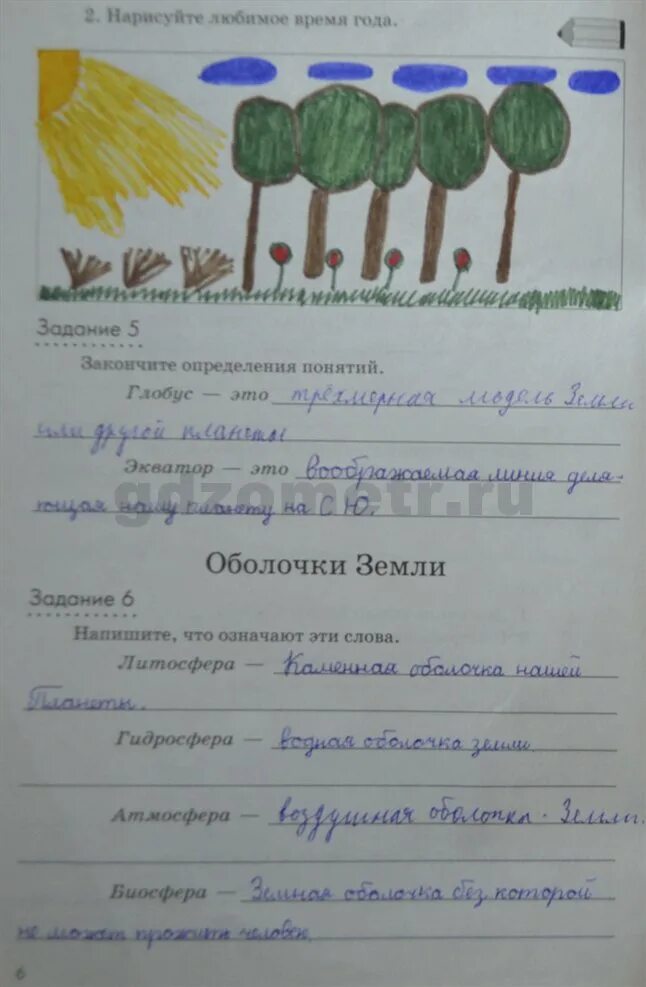 2. Нарисуйте любимое время года.
Задание 5
Закончите определения понятий.
Глобус — это трёхмерная модель Земли
или другой планеты
Экватор — это воображаемая линия деля-
ющая нашу планету на С Ю.
gdzometr.ru
Оболочки Земли
Задание 6
Напишите, что означают эти слова.
Литосфера — Каменная оболочка нашей
Планеты.
Гидросфера — водная оболочка земли.
Атмосфера — воздушная оболочка. Земли.
Биосфера — Земная оболочка без которой
не может прожить человек.
6